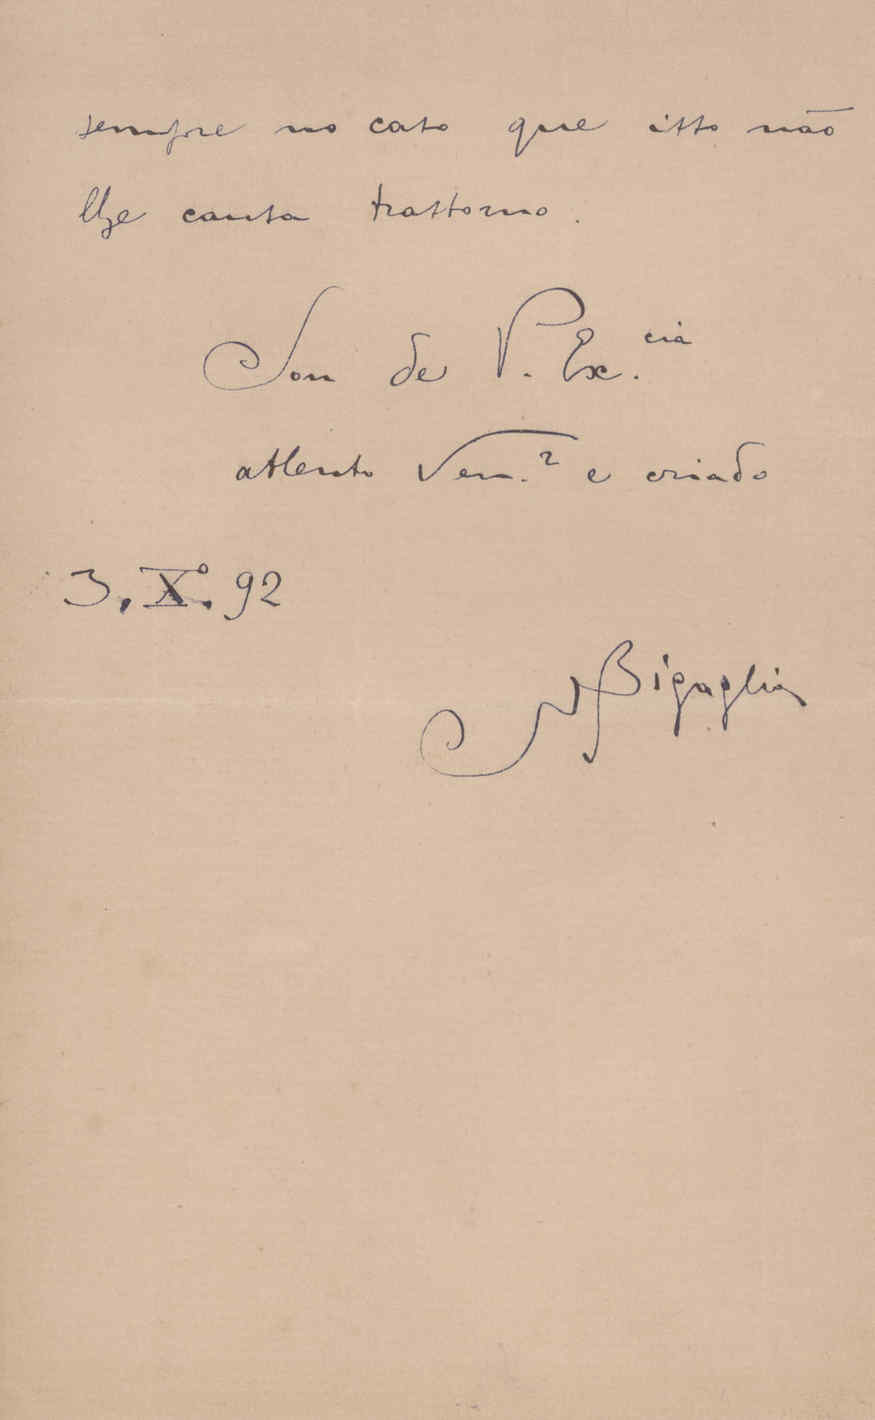 sempre no caso que isto não
lhe causa trastorno.
Sou de V. Ex.cia
attento Ven.r e criado
3. X.º 92
N Bigaglia